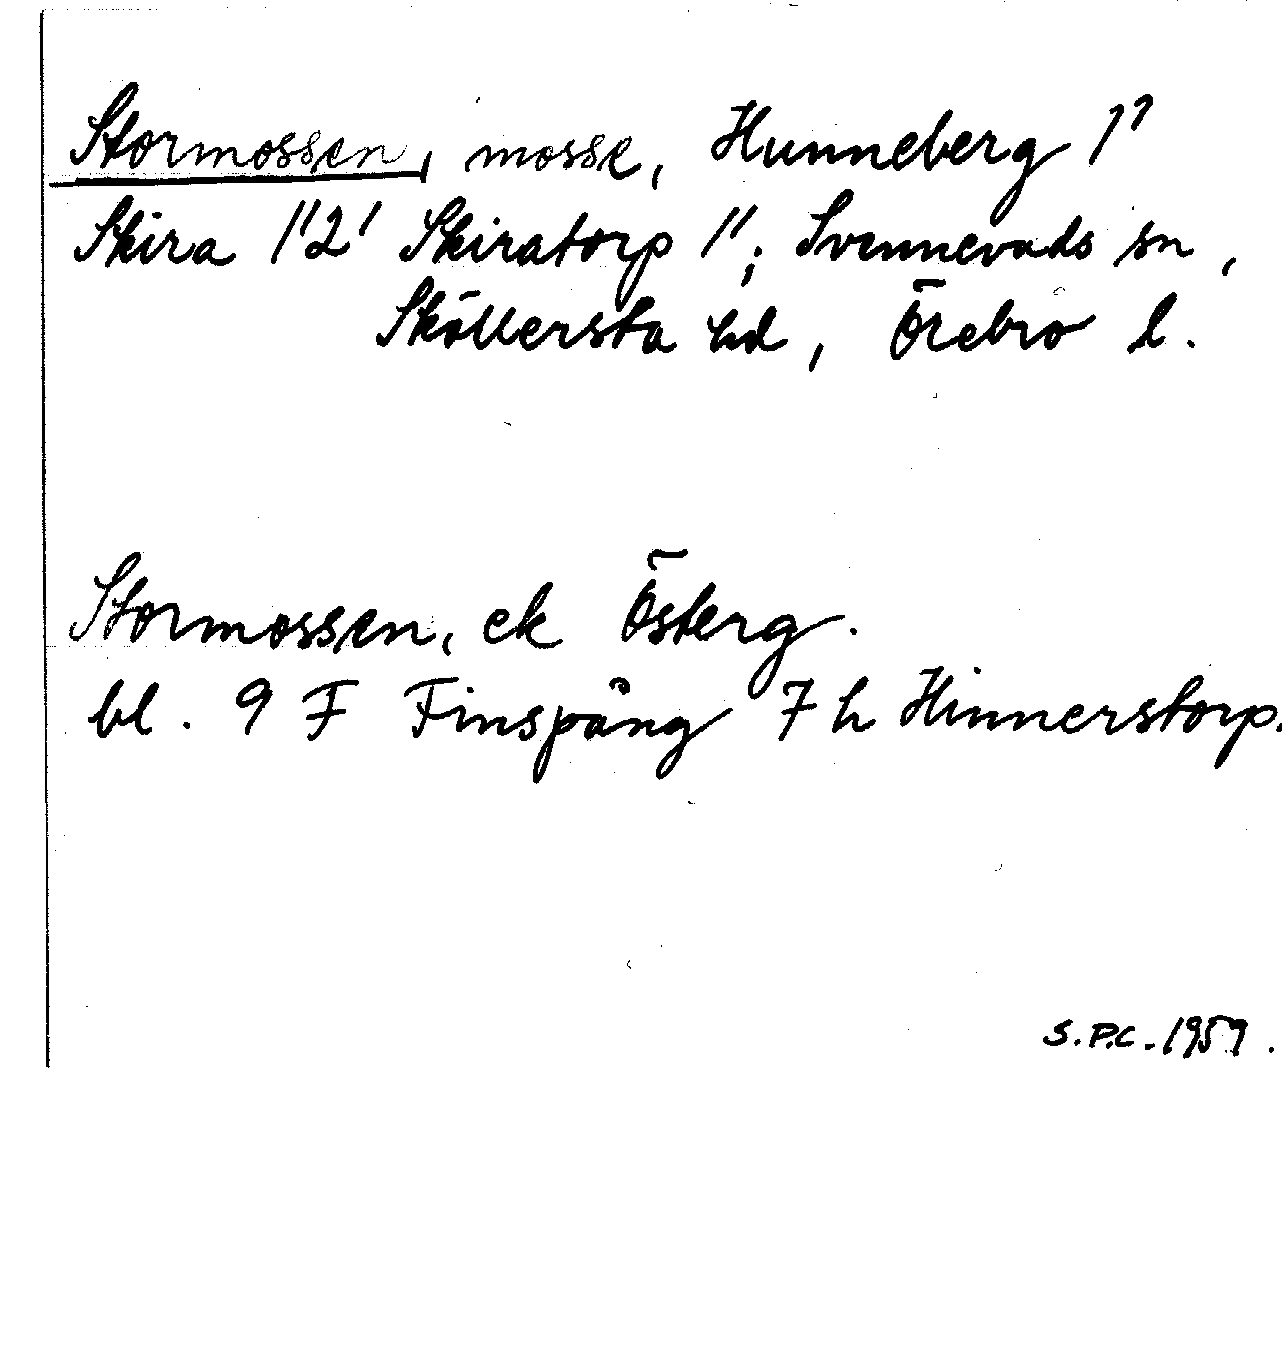 Stormossen, mosse, Hunneberg 1'
Skira 1'2' Skiratorp 1'; Svennevads sn,
Sköllersta hd, Örebro l.
Stormossen, ek Österg.
bl. 9 F Finspång 7 h Hinnerstorp.
S.P.C. 1959.